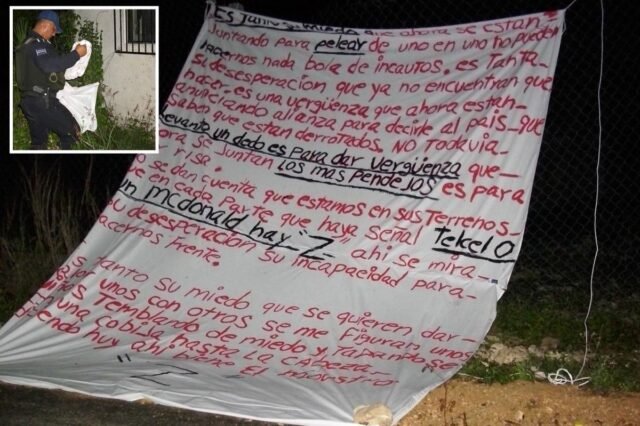 Es tanto su miedo que ahora se estan
Juntando para pelear de uno en uno no pueden
hacernos nada bola de incautos. es tanta
su desesperacion que ya no encuentran que
hacer. es una vergüenza que ahora estan
anunciando alianza para decirle al pais que
saben que estan derrotados. NO Todavia
Levanto un dedo es Para dar Vergüenza que
ahora se Juntan Los mas PendeJos es para
risa.
no se dan cuenta que estamos en sus Terrenos
que en cada Parte que haya señal Tekel O
un mcdonald hay "Z" ahi se mira
su desesperacion su incapacidad para
hacernos frente.
Es tanto su miedo que se quieren dar
unos con otros se me figuran unos
niños Temblando de miedo y tapandose
con una cobija hasta La cabeza
diciendo huy ahi viene El monstro
"Z"